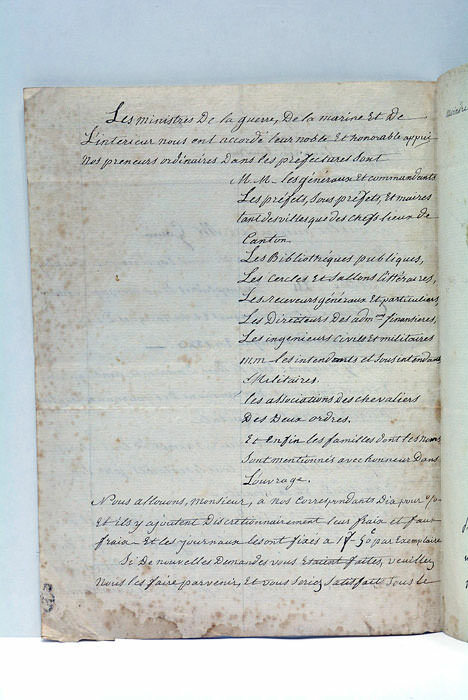 Les ministres De la guerre, De la marine Et De
L'interieur nous ont accordé leur noble Et honorable appui
Nos preneurs ordinaires Dans les préfectures sont
M.M. les généraux Et commandants
Les préfets, Sous préfets, Et maires
tant des villes que des chefs lieux de
Canton
Les Bibliothèques publiques,
Les Cercles Et Sallons littéraires,
Les receveurs généraux Et particuliers
Les Directeurs Des adm.ons financieres,
Les ingénieurs Civils Et militaires
MM. les intendants et Sous intendants
Militaires.
les associations des chevaliers
Des Deux ordres.
Et Enfin les familles dont les noms
Sont mentionnés avec honneur Dans
L'ouvrage.
Nous allouons, monsieur, a nos Correspondants Dix pour %
Et ils y ajoutent Discretionnairement leur frais et faux
frais Et les journaux les ont fixés a 17f 50c par Exemplaire
Si De nouvelles Demandes vous Etaient faites, veuillez
Nous les faire parvenir, Et vous serez Satisfait Sous le